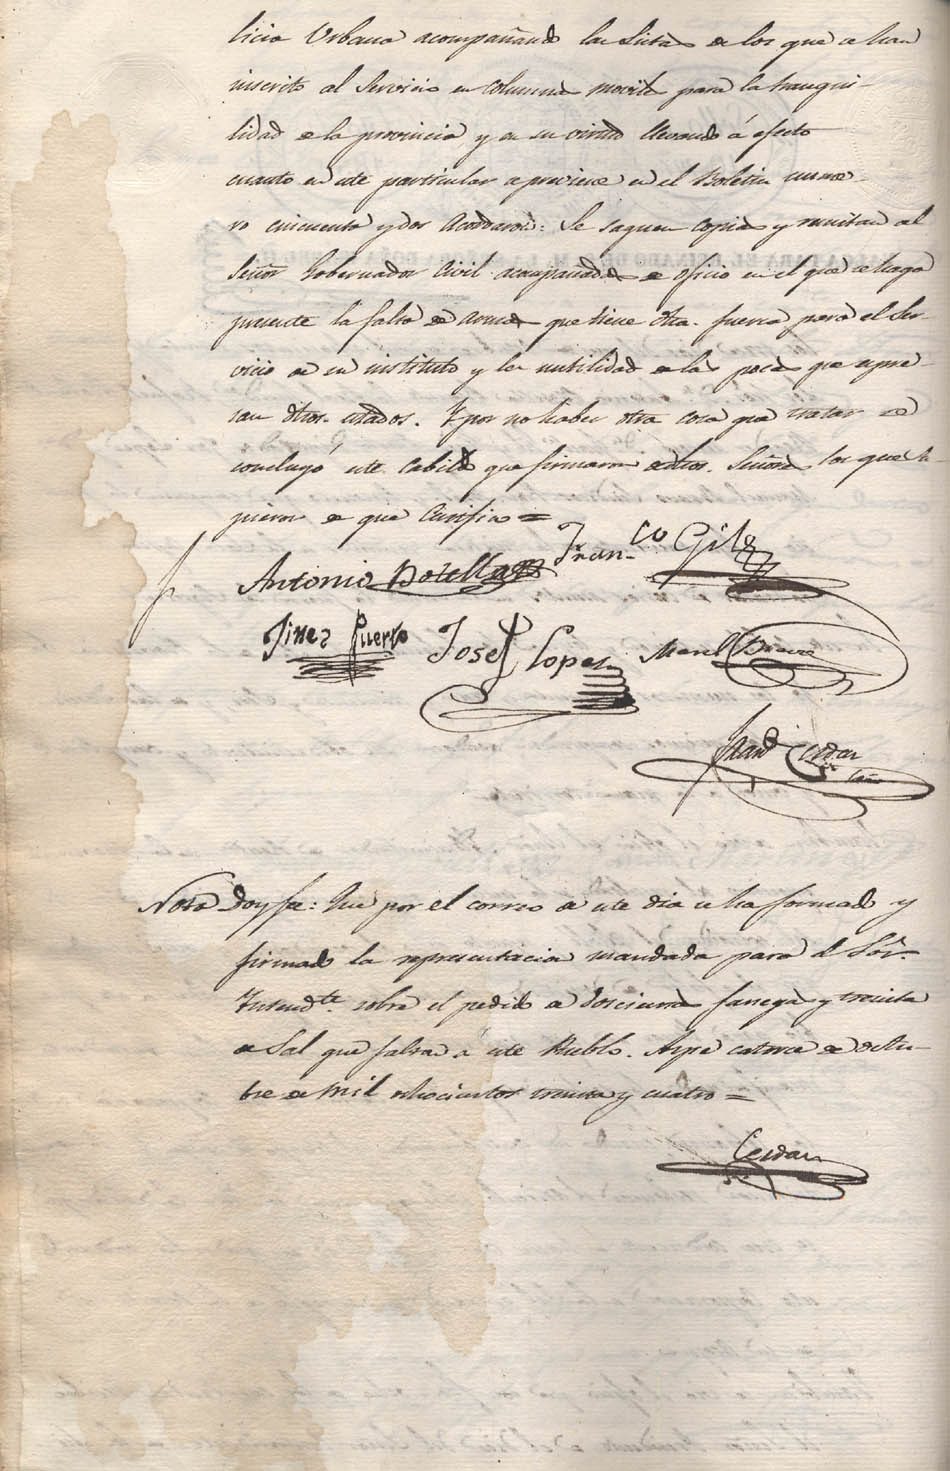 licia Urbana acompañando las listas de los que se han
inscrito al Servicio en columna movil para la tranqui-
lidad de la provincia, y en su virtud llevando á efecto
cuanto en este particular se previene en el Boletin nume-
ro cincuenta y dos Acordaron: Se saquen copias y remitan al
Señor Gobernador Civil acompañadas de oficio en el que se haga
presente la falta de armas que tiene dha. fuerza para el Ser-
vicio de su instituto y la inutilidad de las pocas que apre-
cian dhos. estados. Y por no haber otra cosa que tratar se
concluyó este Cabildo que firmaron dichos Señores los que su-
pieron de que Certifico =
Antonio Botella Fran.co Gil
Jines Puerto Josef Lopez Manl
Fran.co Cerdan
Nota Doy fe: Que por el correo de este dia se ha formado y
firmado la representacion mandada para el Sor.
Intend.te sobre el pedido de doscientas fanegas y treinta
de Sal que faltan á este Pueblo. Aspe catorce de Octu-
bre de mil ochocientos treinta y cuatro =
Cerdan